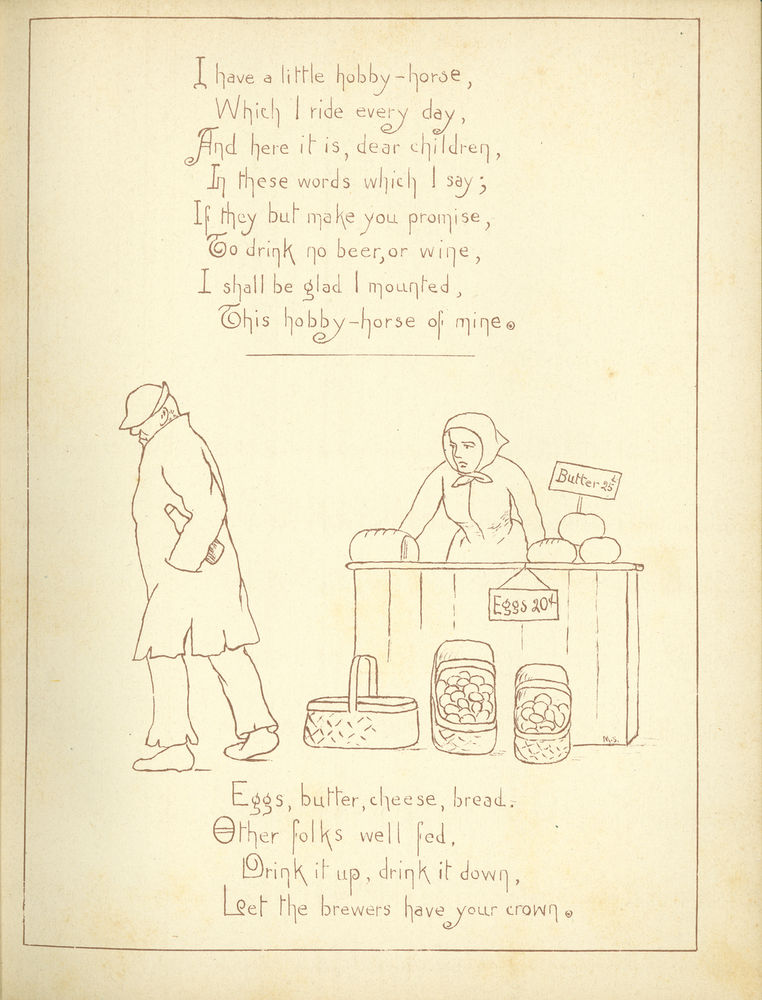 I have a little hobby-horse,
Which I ride every day,
And here it is, dear children,
In these words which I say;
If they but make you promise,
To drink no beer, or wine,
I shall be glad I mounted,
This hobby-horse of mine.
Butter 25¢
Eggs 20¢
M.S.
Eggs, butter, cheese, bread.
Other folks well fed,
Drink it up, drink it down,
Let the brewers have your crown.